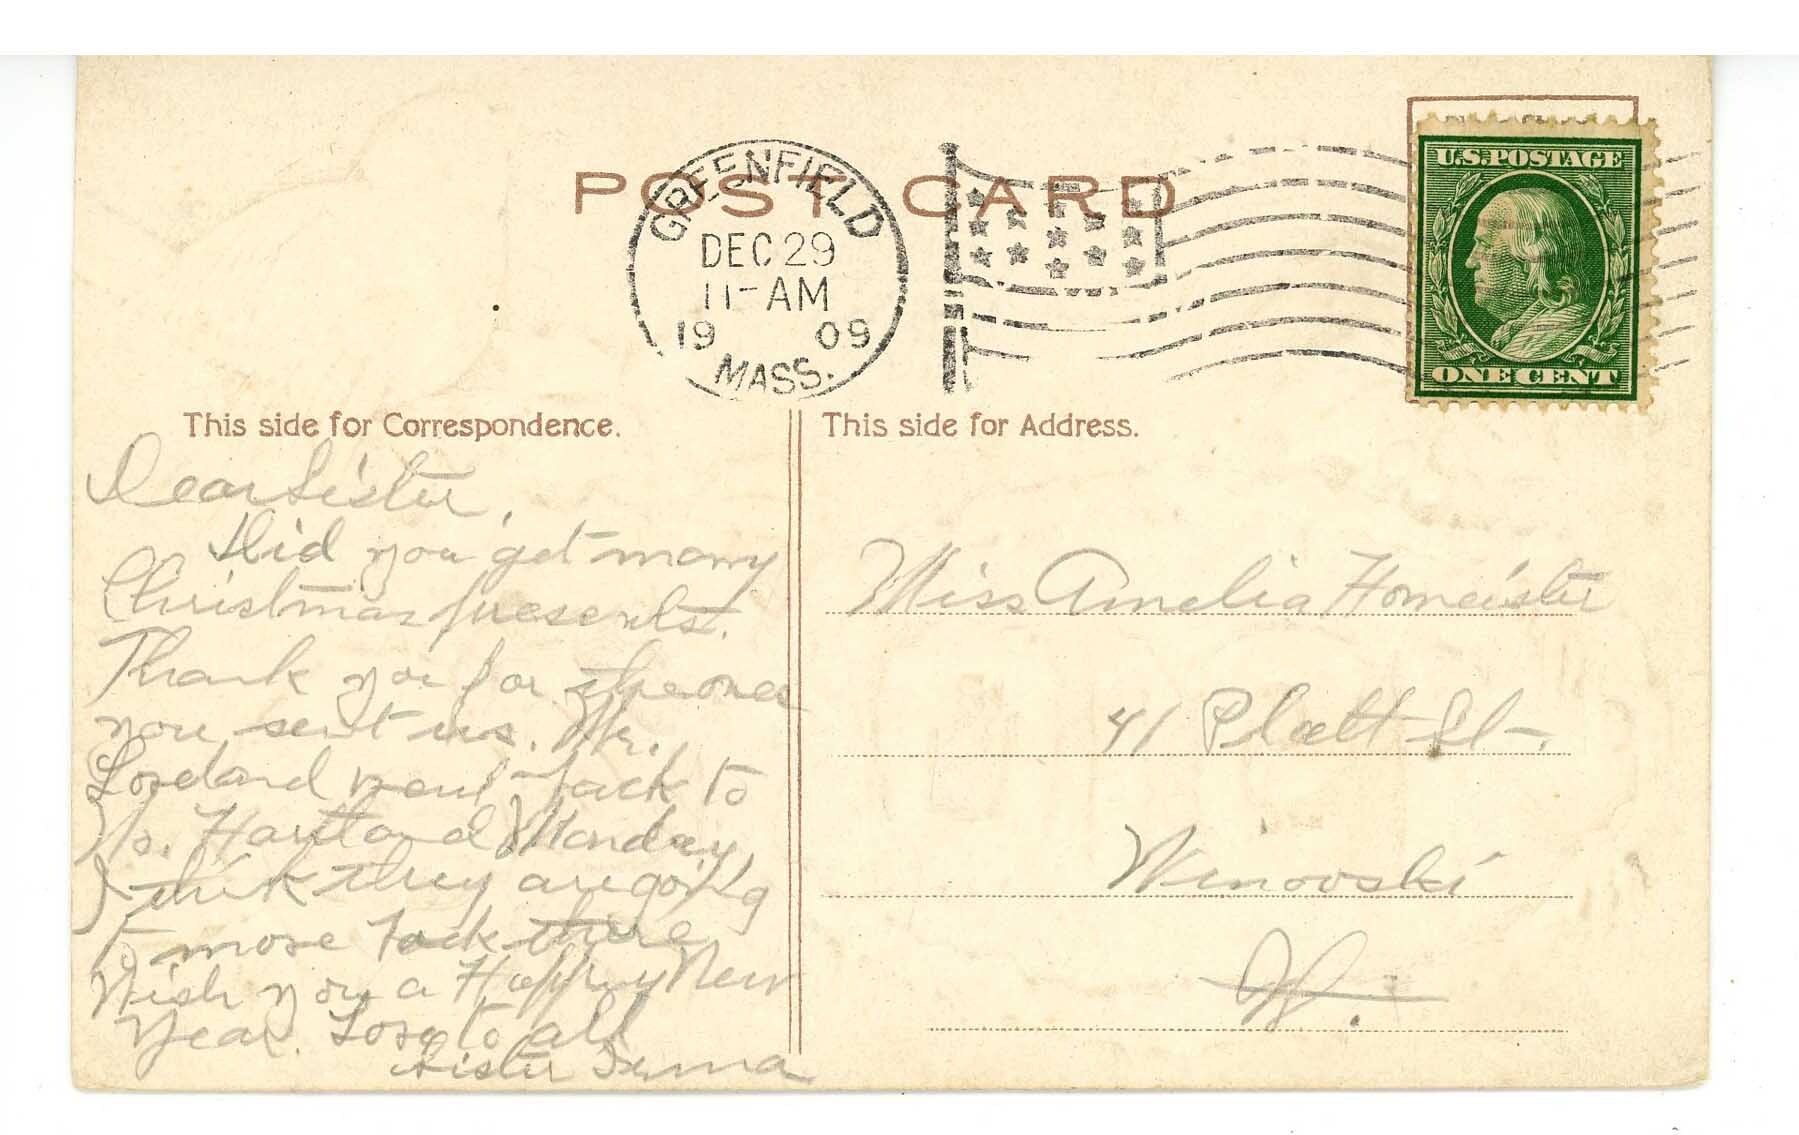 POST CARD
GREENFIELD
DEC 29
11-AM
19 09
MASS.
U.S. POSTAGE
ONE CENT
This side for Correspondence.
Dear Sister,
Did you get many
Christmas presents.
Thank you for the ones
you sent us. Mr.
Loveland went back to
No. Hartland Monday,
I think they are going
to move back there
Wish you a Happy New
Year. Love to all
Sister
This side for Address.
Miss Amelia Homeister
41 Platt St.
Winooski
Vt.